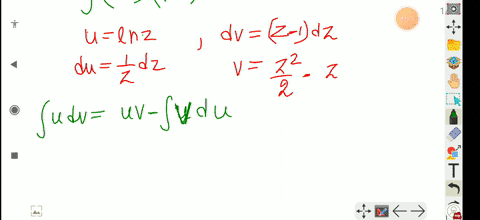 u = ln z , dv = (z-1) dz
du = 1/z dz v = z²/2 - z
∫u dv = uv - ∫v du